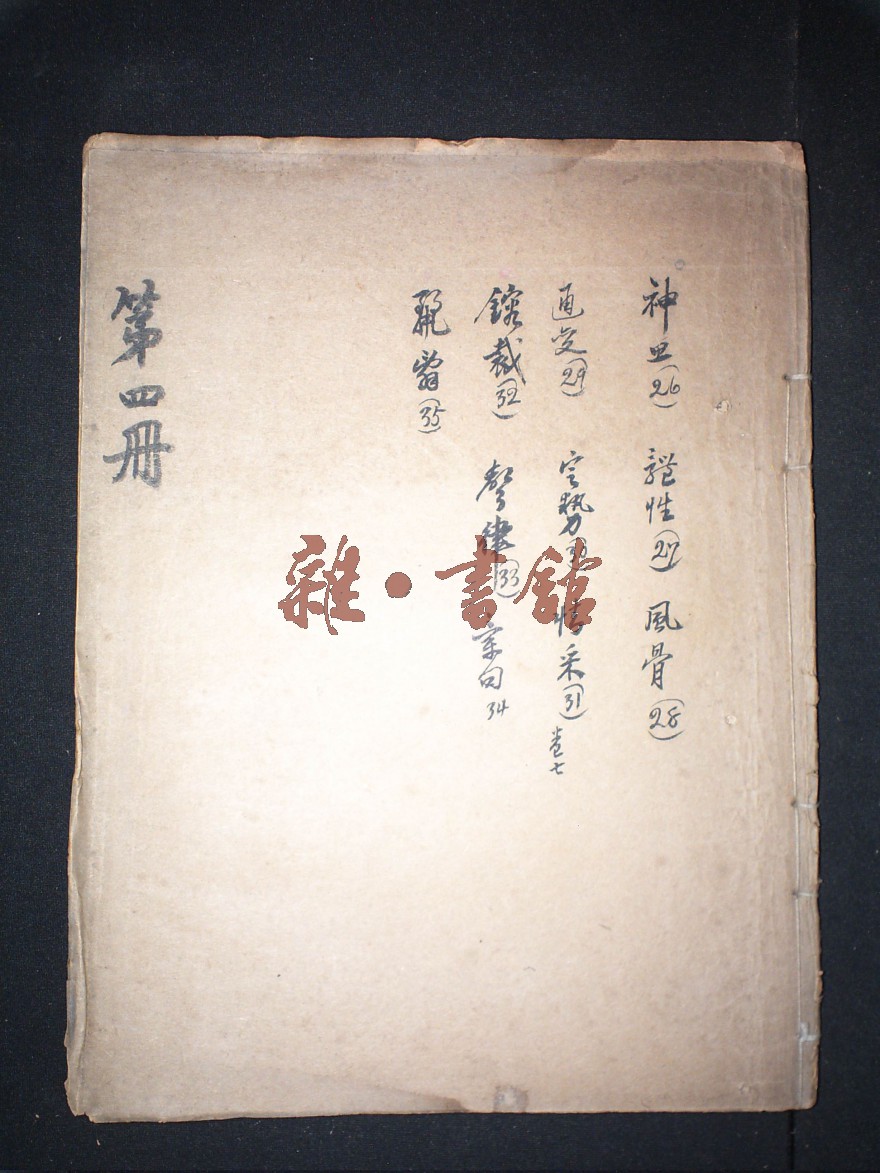 神思(26) 體性(27) 風骨(28)
通变(29) 定勢(30) 情采(31) 卷七
鎔裁(32) 聲律(33) 章句34
麗辭(35)
第四冊
雜·書館